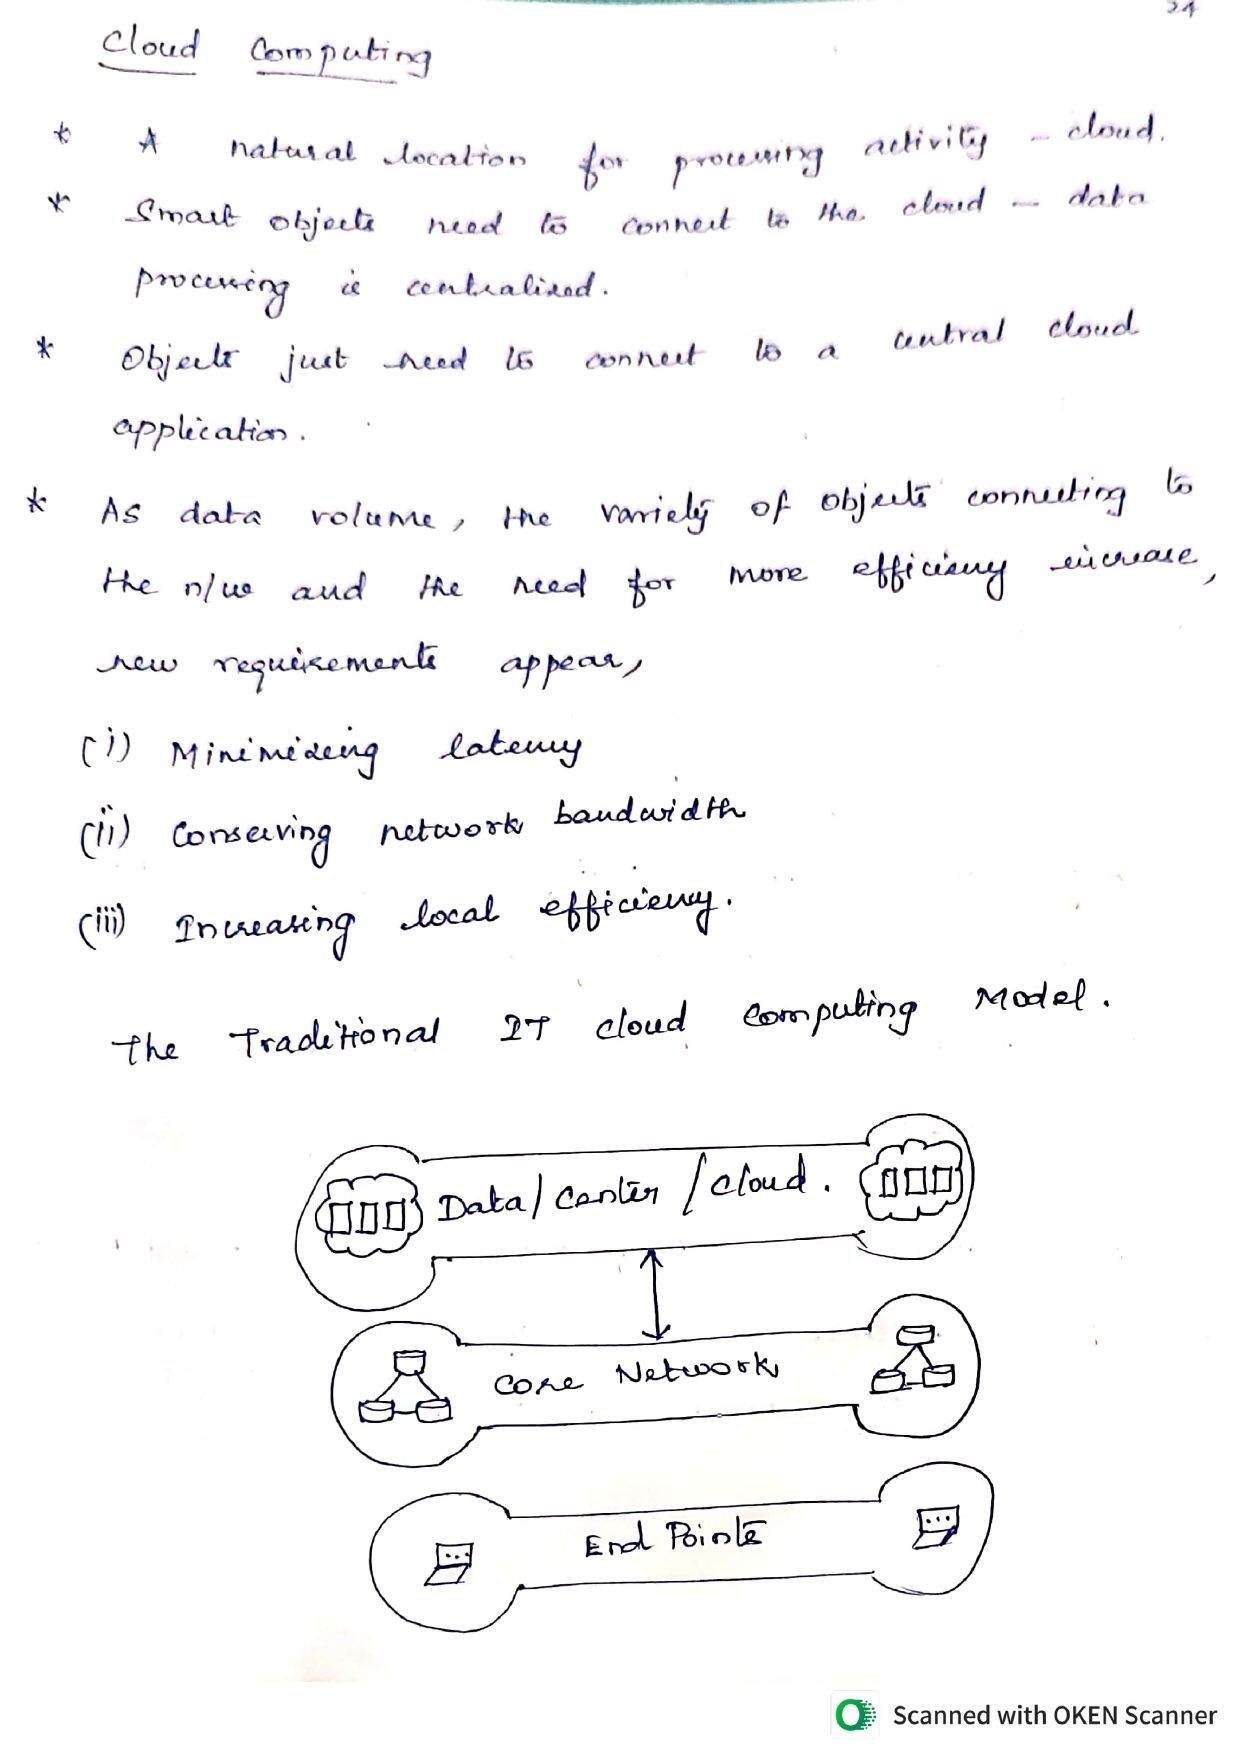 24
Cloud Computing
* A natural location for processing activity - cloud.
* Smart objects need to connect to the cloud - data
processing is centralized.
* Objects just need to connect to a central cloud
application.
* As data volume, the variety of objects connecting to
the n/w and the need for more efficiency increase,
new requirements appear,
(i) Minimizing latency
(ii) Conserving network bandwidth
(iii) Increasing local efficiency.
The Traditional IT cloud Computing Model.
Data/Center/Cloud.
Core Network
End Points
Scanned with OKEN Scanner